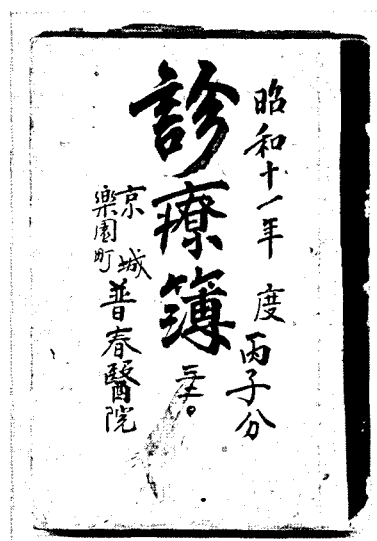 昭和十一年度丙子分
診療簿
京城
樂園町
普春醫院